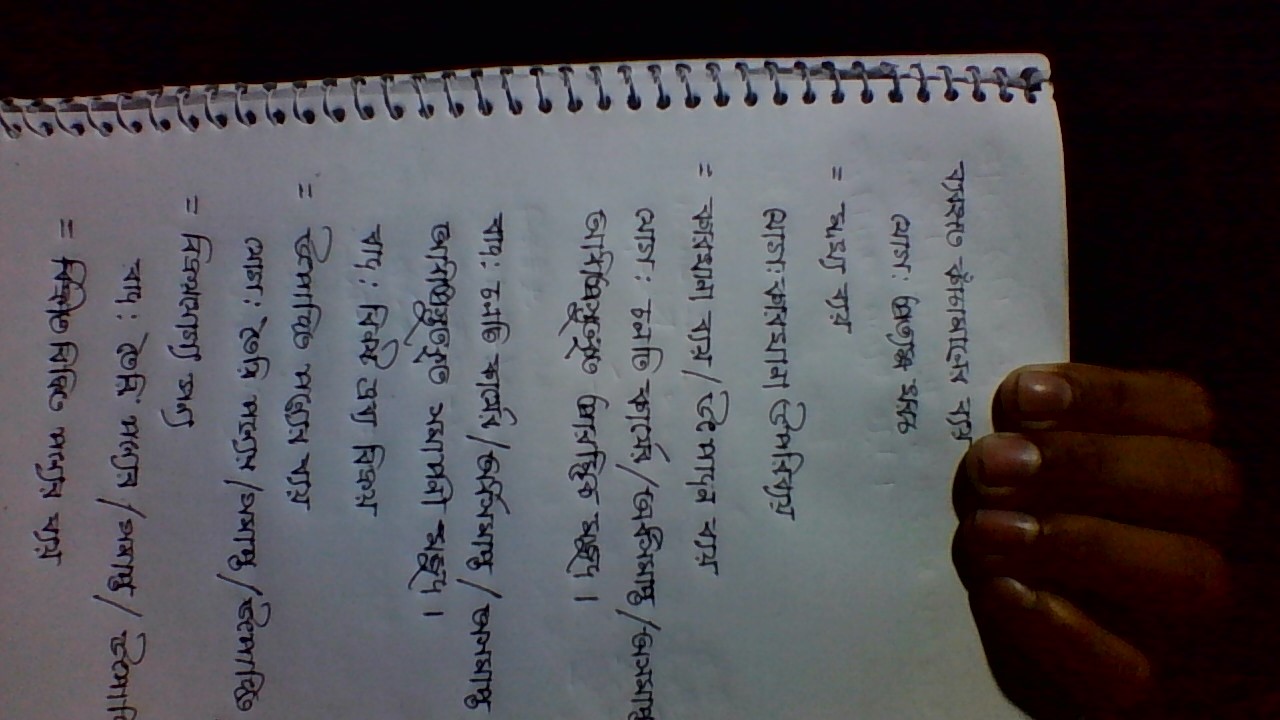 ব্যবহৃত কাঁচামালের ব্যয়
যোগ: প্রত্যক্ষ খরচ
= মুখ্য ব্যয়
যোগ: কারখানা উপরিব্যয়
= কারখানা ব্যয় / উৎপাদন ব্যয়
যোগ: চলতি কার্যের / অর্ধসমাপ্ত / অসমাপ্ত
আধাপ্রস্তুতকৃত প্রারম্ভিক মজুদ ।
বাদ: চলতি কার্যের / অর্ধসমাপ্ত / অসমাপ্ত
আধাপ্রস্তুতকৃত সমাপনী মজুদ ।
বাদ: বিনষ্ট দ্রব্য বিক্রয়
= উৎপাদিত পণ্যের ব্যয়
যোগ: তৈরি পণ্যের / সমাপ্ত / উৎপাদিত
= বিক্রয়যোগ্য পণ্য
বাদ: তৈরি পণ্যের / সমাপ্ত /
= বিক্রীত পণ্যের ব্যয়